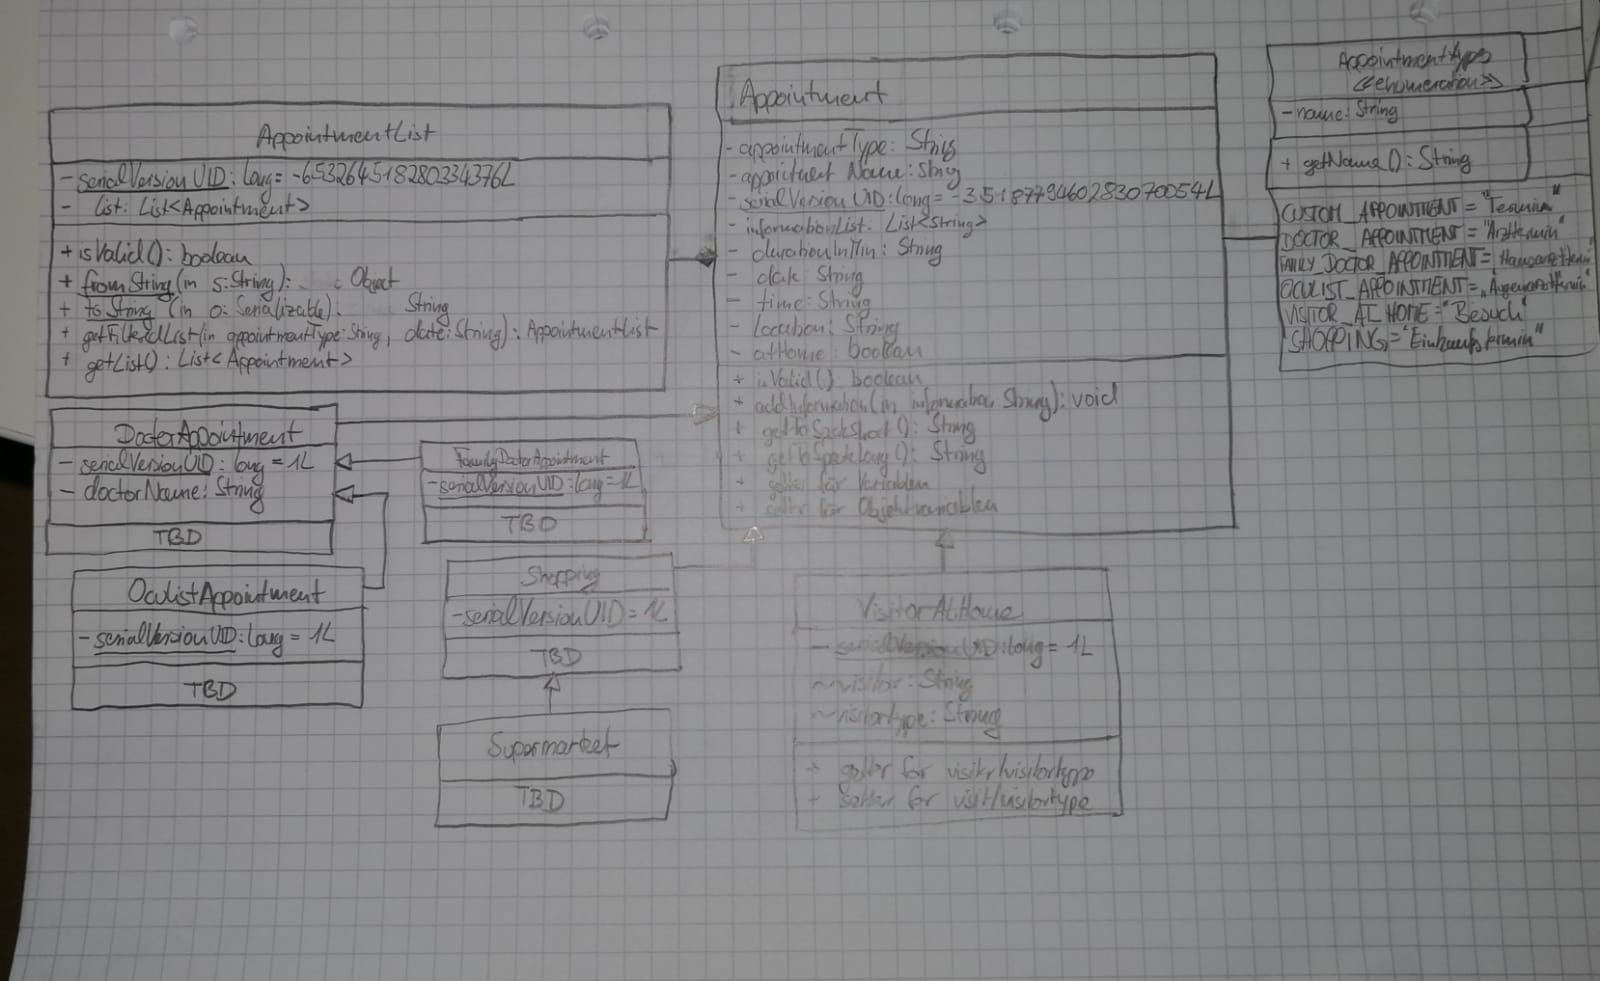 AppointmentList
- serialVersionUID: long = -6532645182803343762L
- list: List<Appointment>
+ isValid(): boolean
+ fromString(in s:String): Object
+ toString(in o: Serializable): String
+ getFilteredList(in appointmentType:String, date:String): AppointmentList
+ getList(): List<Appointment>
Appointment
- appointmentType: String
- appointmentName: String
- serialVersionUID: long = -3518779460283070054L
- informationList: List<String>
- durationInMin: String
- date: String
- time: String
- location: String
- atHome: boolean
+ isValid(): boolean
+ addInformation(in information String): void
+ getToSpeakShort(): String
+ getToSpeakLong(): String
+ getter für Variablen
+ setter für Objektvariablen
AppointmentType
<<enumeration>>
- name: String
+ getName(): String
CUSTOM_APPOINTMENT = "Termin"
DOCTOR_APPOINTMENT = "Arzttermin"
FAMILY_DOCTOR_APPOINTMENT =
OCULIST_APPOINTMENT = "Augenarzttermin"
VISITOR_AT_HOME = "Besuch"
SHOPPING = "Einkaufstermin"
DoctorAppointment
- serialVersionUID: long = 1L
- doctorName: String
TBD
FamilyDoctorAppointment
- serialVersionUID: long = 1L
TBD
OculistAppointment
- serialVersionUID: long = 1L
TBD
Shopping
- serialVersionUID = 1L
TBD
Supermarket
TBD
VisitorAtHome
- serialVersionUID: long = 1L
~ visitor: String
~ visitortype: String
+ getter for visitor/visitortype
+ setter for visit/visitortype